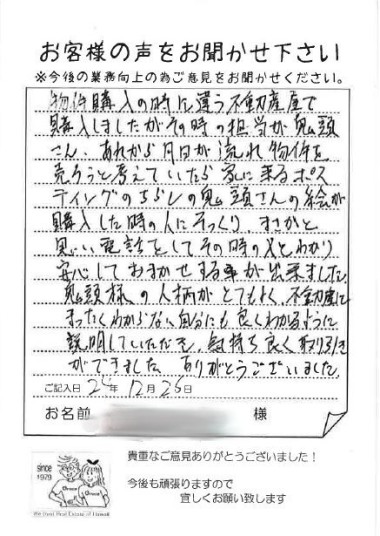 お客様の声をお聞かせ下さい
※今後の業務向上の為ご意見をお聞かせください。
物件購入の時に違う不動産屋で
購入しましたがその時の担当が鬼頭
さん、あれから月日が流れ物件を
売ろうと考えていたら家に来るポス
ティングのちらしの鬼頭さんの絵が
購入した時の人にそっくり、まさかと
思い、電話をしてその時の人とわかり
安心しておまかせする事が出来ました。
鬼頭様の人柄がとてもよく、不動産に
まったくわからない自分にも良くわかるように
説明していただき、気持ち良く取り引き
ができました ありがとうございました
ご記入日 26年 12月 26日
お名前 様
貴重なご意見ありがとうございました!
今後も頑張りますので
宜しくお願い致します
since
1979